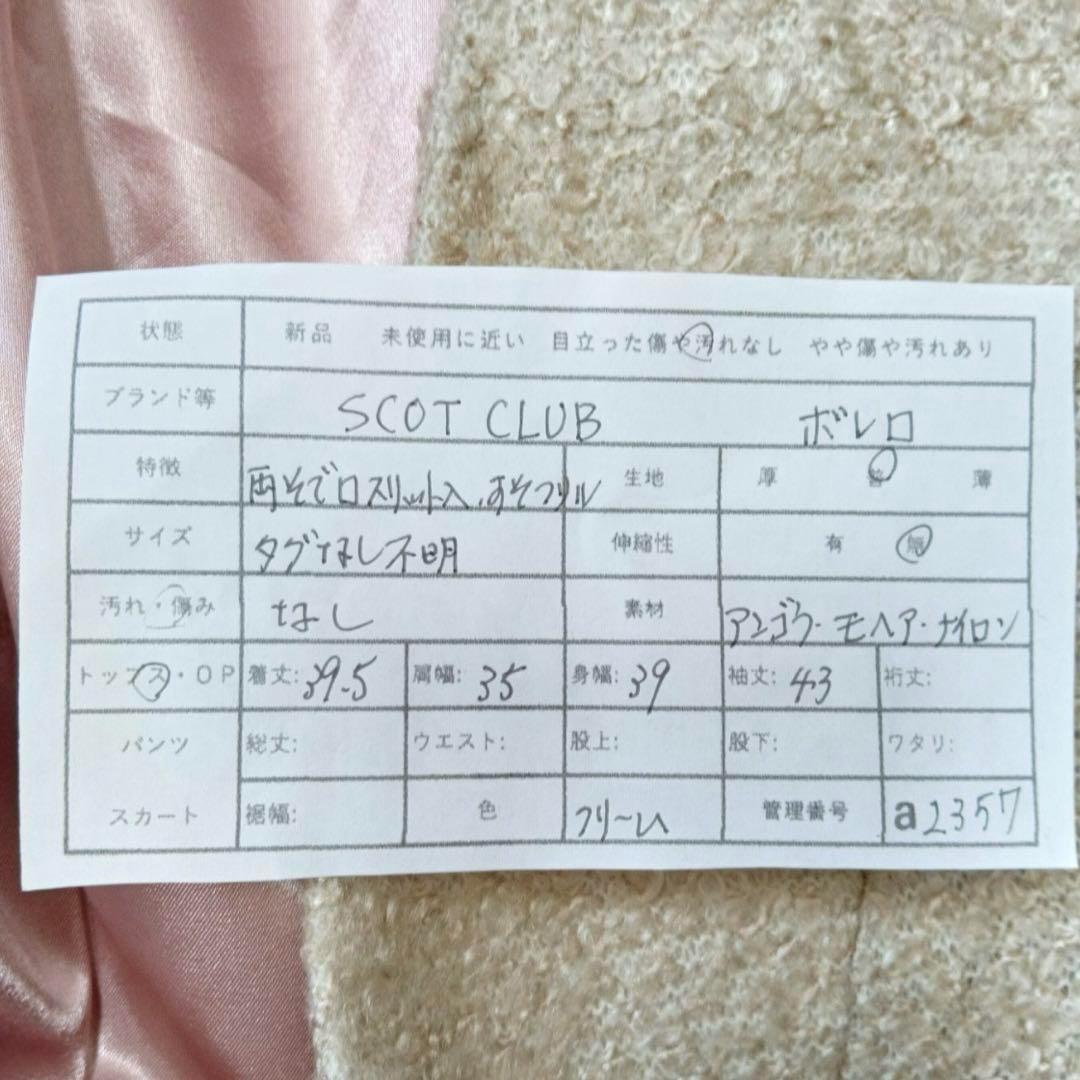 状態 新品 未使用に近い 目立った傷や汚れなし やや傷や汚れあり
ブランド等 SCOT CLUB ボレロ
特徴 両そで口スリット入、すそフリル 生地 厚 普 薄
サイズ タグなし不明 伸縮性 有 無
汚れ・傷み なし 素材 アンゴラ・モヘア・ナイロン
トップス・OP 着丈:39.5 肩幅:35 身幅:39 袖丈:43 裄丈:
パンツ 総丈: ウエスト: 股上: 股下: ワタリ:
スカート 裾幅: 色 クリーム 管理番号 a2357